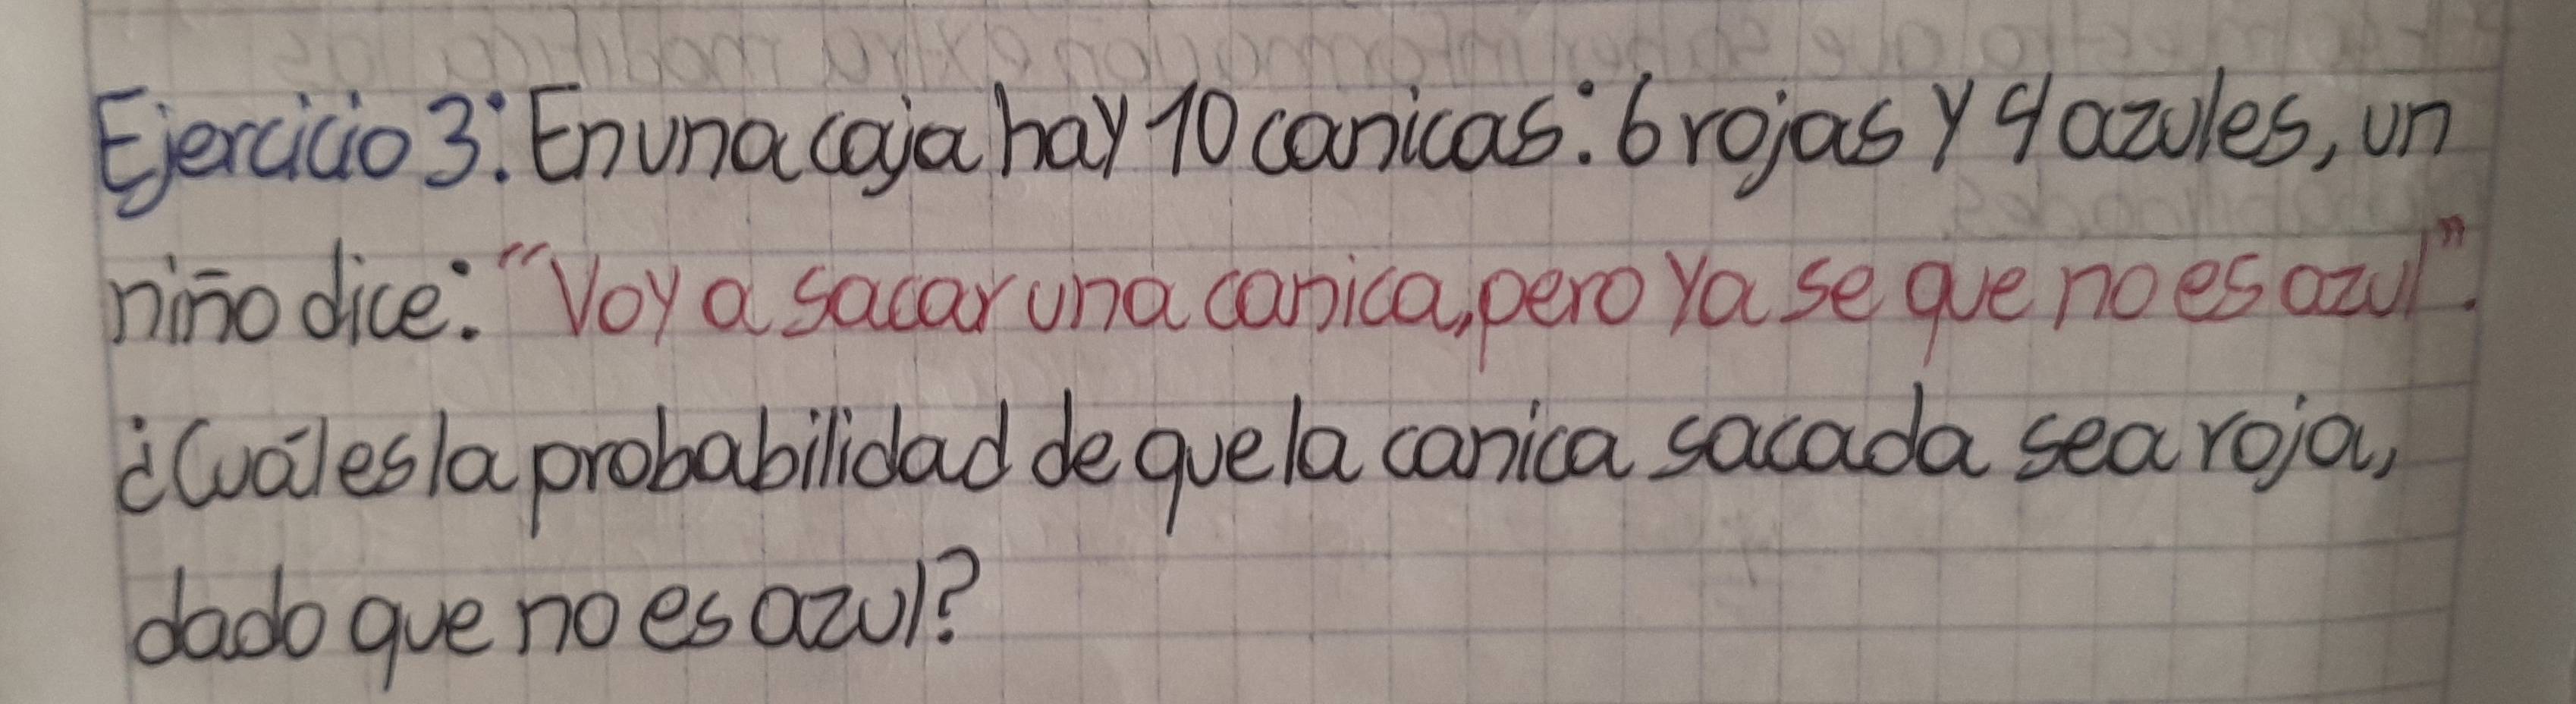 Ejercicio 3: En una caja hay 10 canicas: 6 rojas y 4 azules, un
niño dice: "Voy a sacar una canica, pero ya se que no es azul".
¿Cuál es la probabilidad de que la canica sacada sea roja,
dado que no es azul?